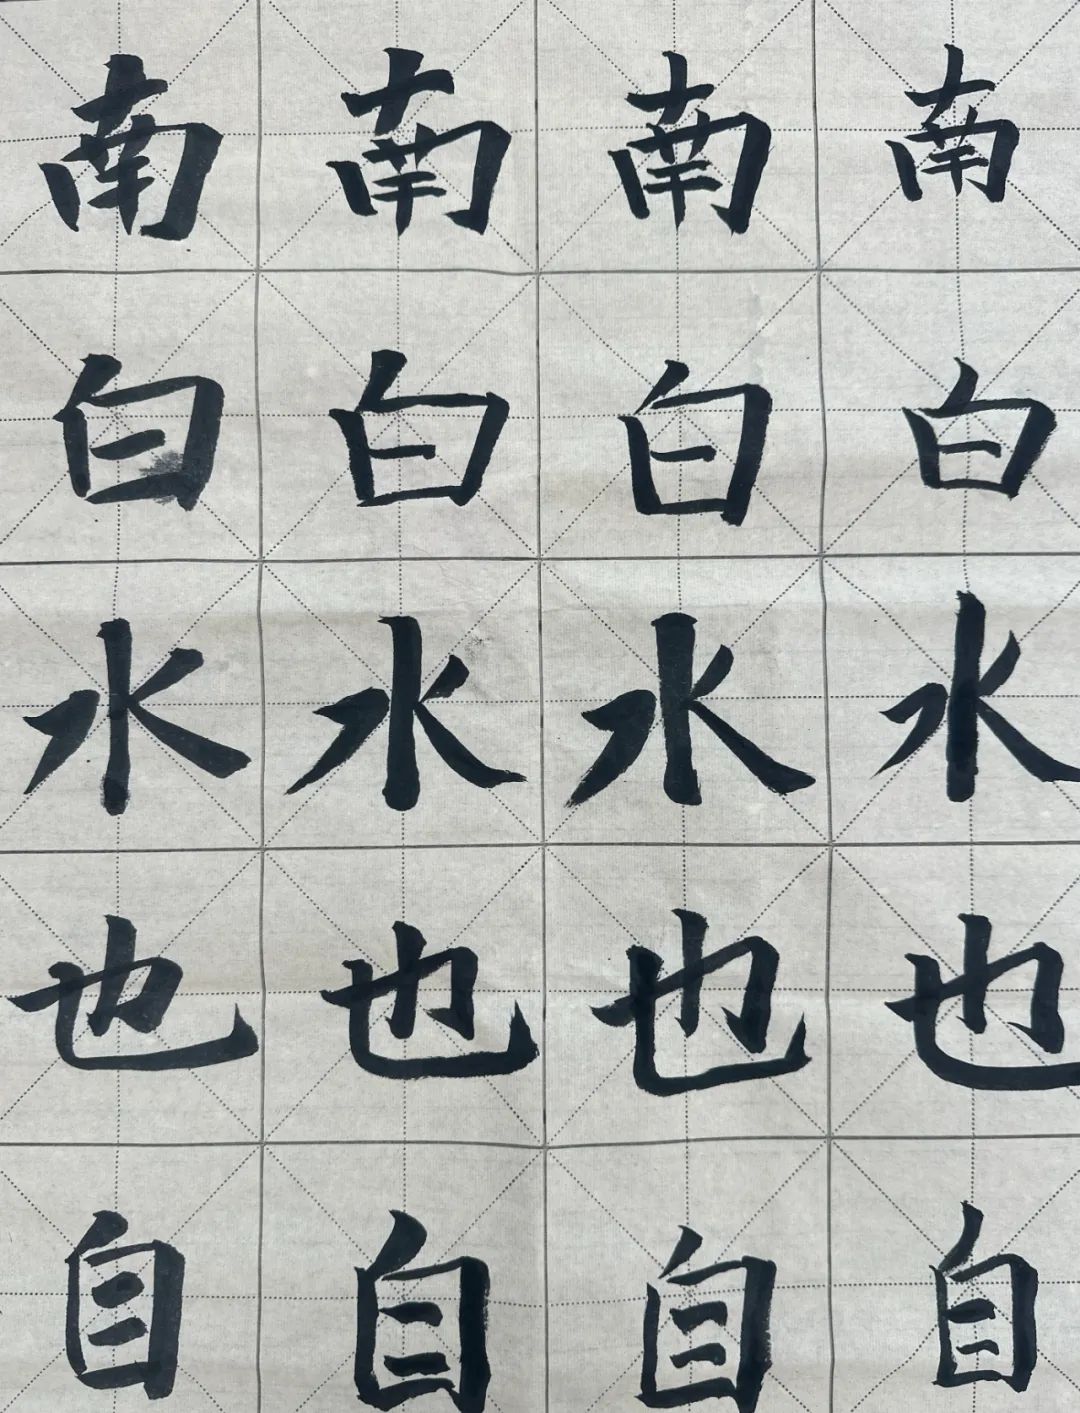 南南南南
白白白白
水水水水
也也也也
自自自自